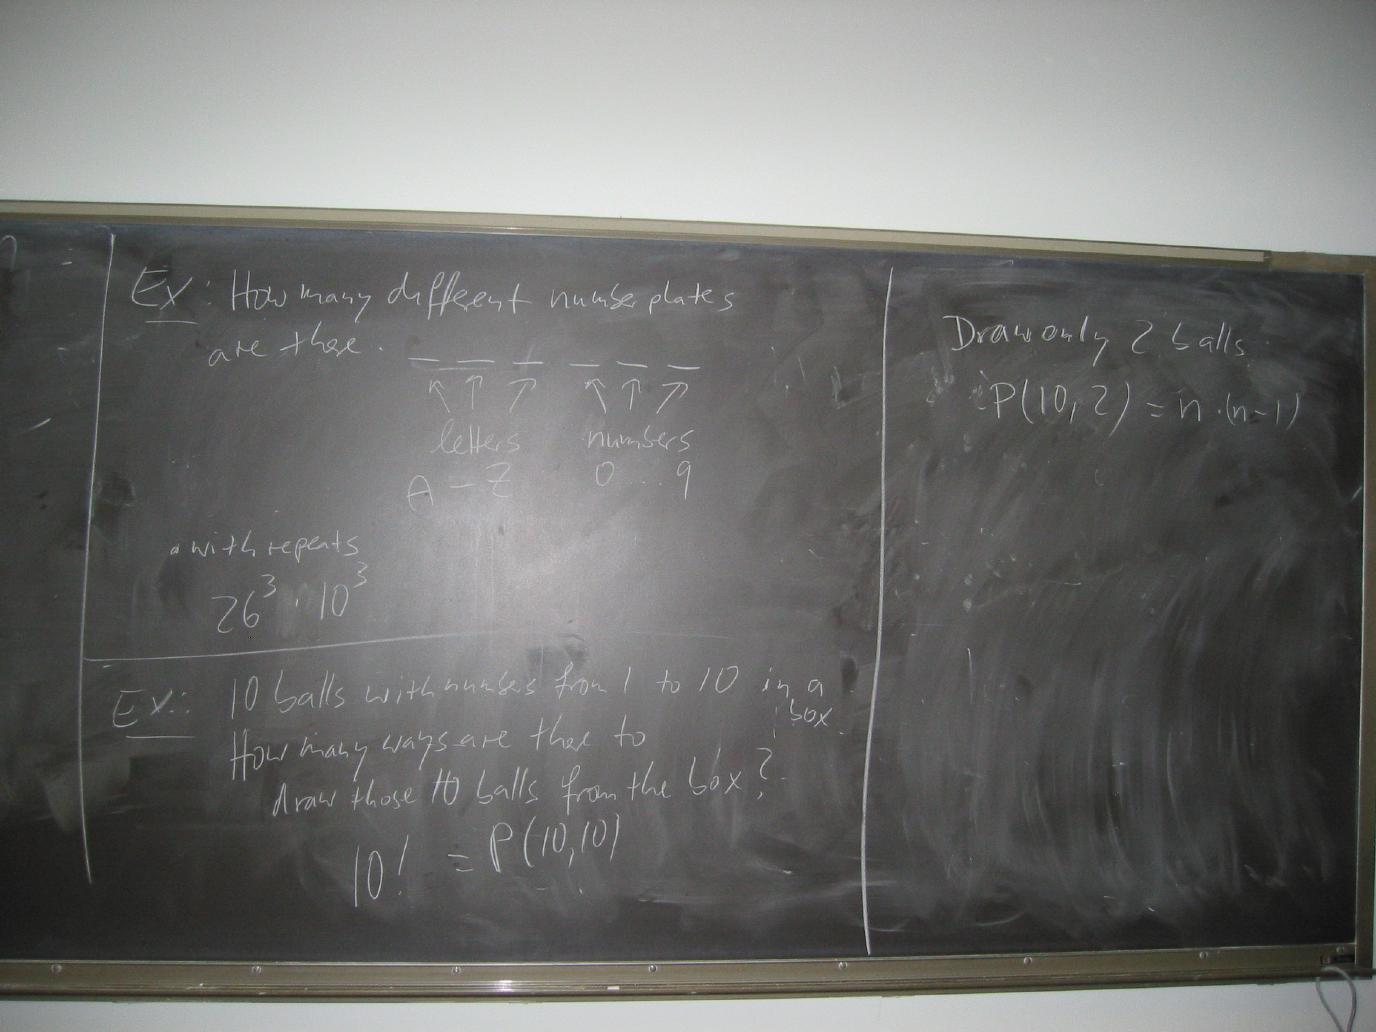 Ex: How many different number plates
are there.
letters numbers
A - Z 0 .. 9
• with repeats
26³ · 10³
Ex.: 10 balls with numbers from 1 to 10 in a
box.
How many ways are there to
draw those 10 balls from the box?
10! = P(10,10)
Draw only 2 balls.
P(10,2) = n·(n-1)